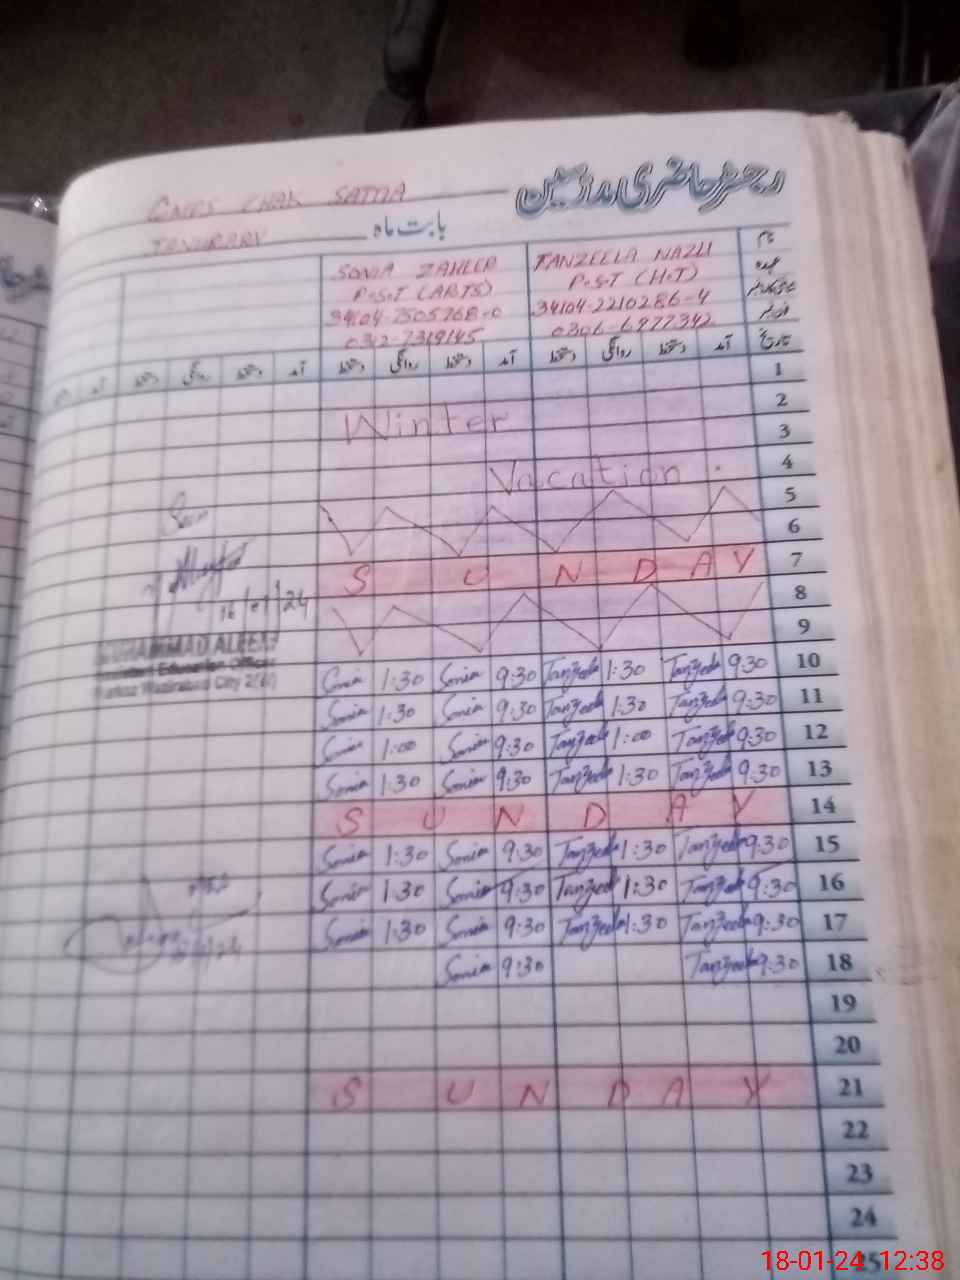 رجسٹر حاضری ملازمین
CHAK SATIA
بابت ماہ
JANURARY
نام
TANZEELA NAZLI
SONIA ZAHEER
عہدہ
P.S.T (H.T)
P.S.T (ARTS)
34104-2210286-4
34104-7505768-0
0306-6977342
0342-7319145
تاریخ آمد دستخط روانگی دستخط آمد دستخط روانگی دستخط آمد دستخط روانگی دستخط آمد
1
2
Winter
3
Vacation.
4
5
6
S U N D A Y 7
8
9
Sonia 1:30 Sonia 9:30 Tanzeela 1:30 Tanzeela 9:30 10
Sonia 1:30 Sonia 9:30 Tanzeela 1:30 Tanzeela 9:30 11
Sonia 1:00 Sonia 9:30 Tanzeela 1:00 Tanzeela 9:30 12
Sonia 1:30 Sonia 9:30 Tanzeela 1:30 Tanzeela 9:30 13
S U N D A Y 14
Sonia 1:30 Sonia 9:30 Tanzeela 1:30 Tanzeela 9:30 15
Sonia 1:30 Sonia 9:30 Tanzeela 1:30 Tanzeela 9:30 16
Sonia 1:30 Sonia 9:30 Tanzeela 1:30 Tanzeela 9:30 17
Sonia 9:30 Tanzeela 9:30 18
19
20
S U N D A Y 21
22
23
24
25
Seen
16/01/24
MUHAMMAD ALEEM
Assistant Education Officer
Markaz Wazirabad City
18-01-24 12:38